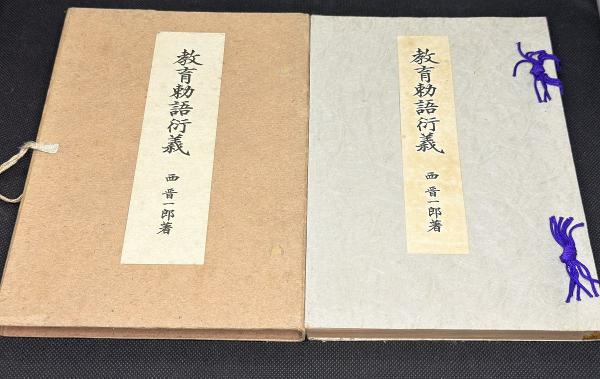 教育勅語衍義
西晋一郎著
教育勅語衍義
西晋一郎著